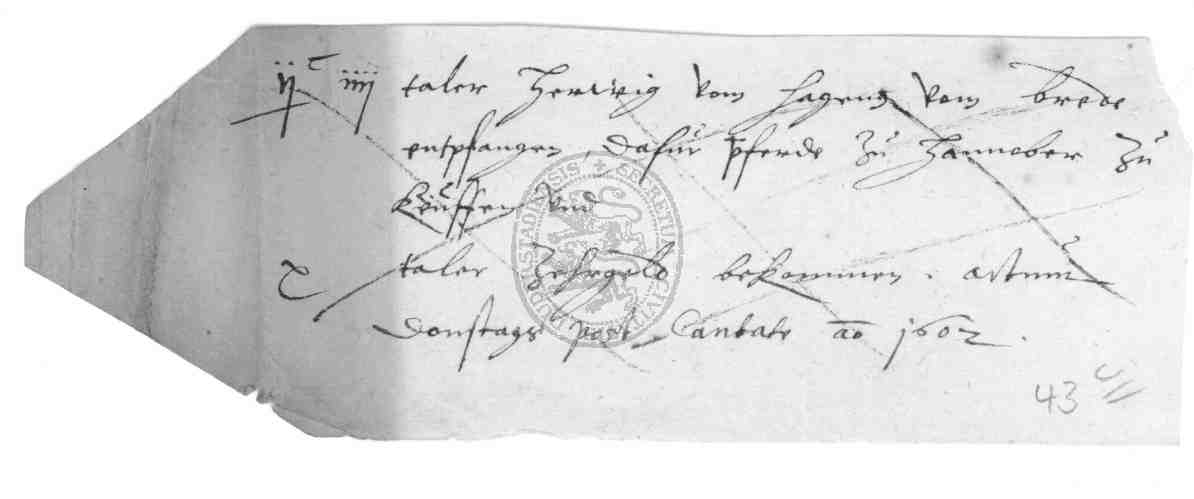 ijᶜ iiij taler Herwig vom Hagen vom brode
entpfangen, dafur pferde zu Hannober zu
keuffen vnd
x taler Zehrgeld bekommen. actum
Donstags post Cantate ao 1602.
43
SECRETUM CIVIT DUDERSTADENSIS